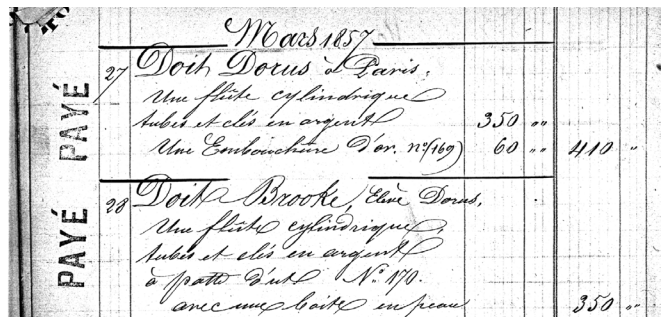 Mars 1857
PAYÉ
27 Doit Dorus à Paris,
Une flûte cylindrique
tubes et clés en argent 350 " "
Une Embouchure d'or. no (169) 60 " " 410 "
PAYÉ
28 Doit Brooke, Elève Dorus,
Une flûte cylindrique,
tubes et clés en argent
à patte d'ut No 170.
avec une boite en peau 350 " "